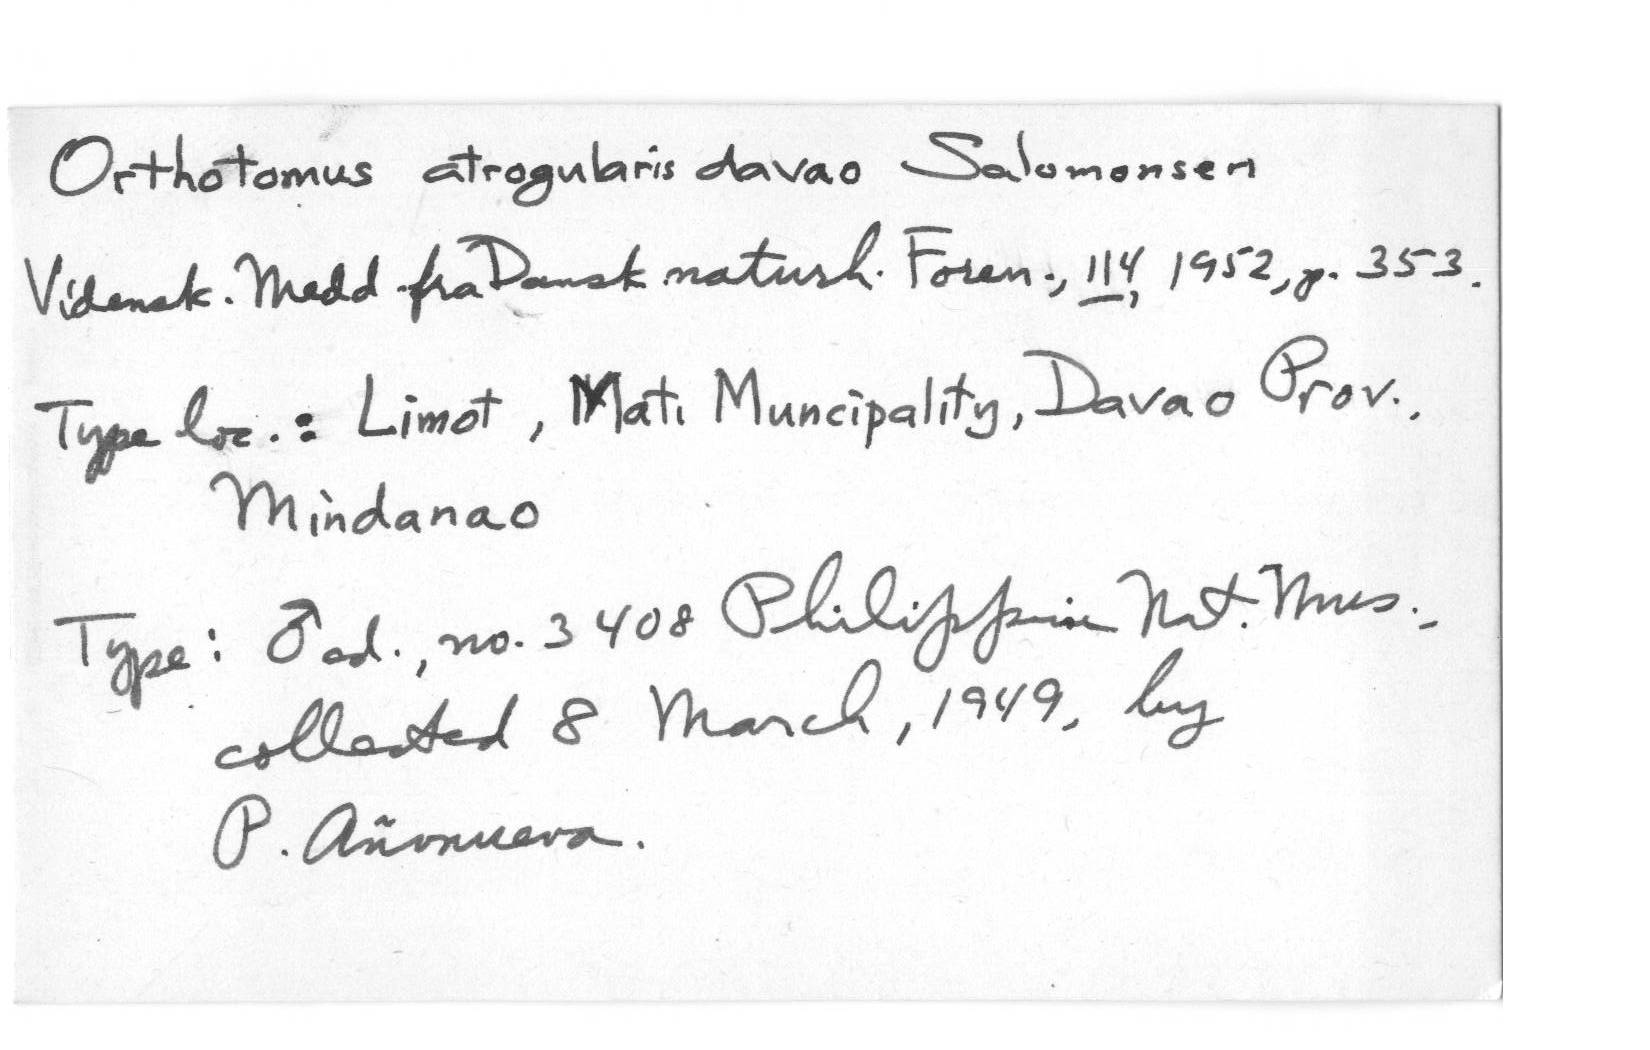 Orthotomus atrogularis davao Salomonsen
Vidensk. Medd fra Dansk naturh. Foren., 114, 1952, p. 353.
Type loc.: Limot, Mati Muncipality, Davao Prov.,
Mindanao
Type: ♂ ad., no. 3408 Philippine Nat. Mus.
collected 8 March, 1949, by
P. Añonueva.